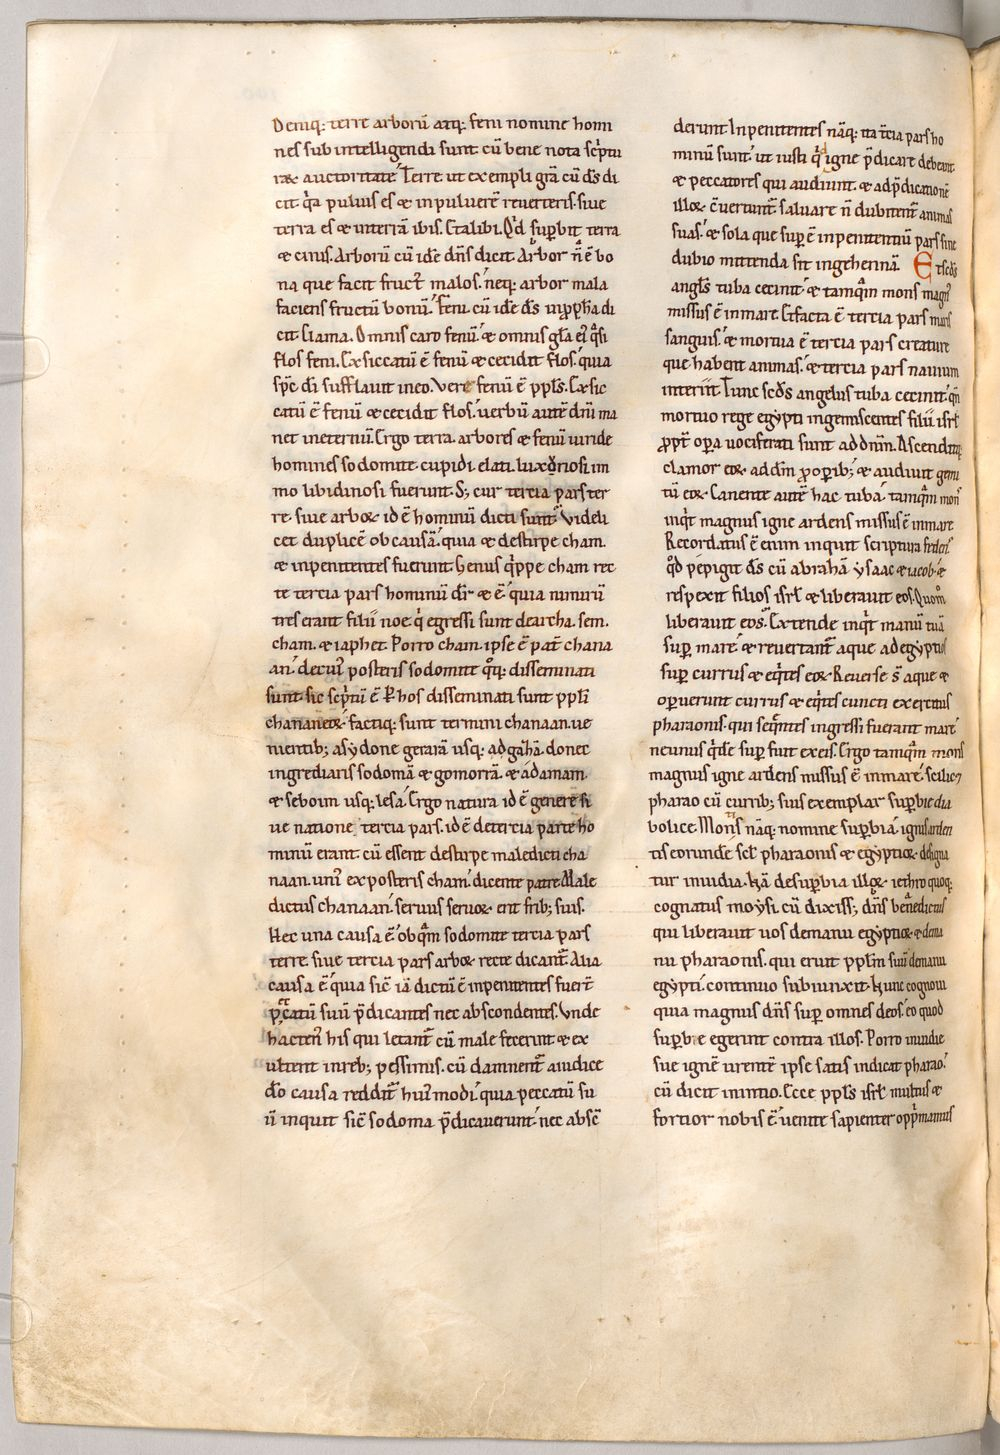 Deniq; terre arborū atq; feni nomine homi
nes sub intelligendi sunt cū bene nota sc̄ptu
raꝝ auctoritate. Terre ut exempli grā cū d̄s di
cit. q̄a puluis es & in puluerē reuerteris. siue
terra es & in terrā ibis. Et alibi. Qd̄ sup̄bit terra
& cinis. Arborū cū idē dn̄s dicit. Arbor n̄ ē bo
na que facit fruct᷒ malos. neq; arbor mala
faciens fructū bonū. Feni cū idē d̄s in p̄ph̄a di
cit. Clama. Omnis caro fenū. & omnis gl̄a ei᷒ q̄si
flos feni. Exsiccatū ē fenū & cecidit flos. quia
sp̄c d̄i sufflauit in eo. Vere fenū ē ppl̄s. Exsic
catū ē fenū & cecidit flos. uerbū autē dn̄i ma
net in eternū. Ergo terra. arbores & fenū uiride
homines sodomite. cupidi. elati. luxoriosi. im
mo libidinosi fuerunt. S; cur tercia pars ter
re. siue arboꝝ id ē hominū dicti sunt. Videli
cet duplicē ob causā. quia & de stirpe cham.
& inpenitentes fuerunt. Genus q̄ppe cham rec
te tercia pars hominū dr̄ & ē. quia nimirū
tres erant filii noe. q̄ egressi sunt de archa. sem.
cham. & iaphet. Porro cham. ipse ē pat̄ chana
an. de cui᷒ posteris sodomite q̄q; disseminati
sunt. sic sc̄ptū ē. P̄ hos disseminati sunt ppl̄i
chananeoꝝ. factiq; sunt termini chanaan. ue
nientib; a sydone gerarā usq; ad gazā. donec
ingrediaris sodomā & gomorrā. & adamam.
& seboim usq; lesa. Ergo natura id ē genere si
ue natione tercia pars. id ē de tercia parte ho
minū erant. cū essent de stirpe maledicti cha
naan. uni᷒ ex posteris cham. dicente patre. Male
dictus chanaan. seruus seruoꝝ erit frib; suis.
Hec una causa ē. ob qm̄ sodomite tercia pars
terre. siue tercia pars arboꝝ recte dicant᷑. Alia
causa ē. quia sic̄ iā dictū ē inpenitentes fuer̄t
peccatū suū p̄dicantes nec abscondentes. Vnde
hacten᷒ his qui letant᷑ cū male fecerint & ex
ultent in reb; pessimis. cū damnent᷑ a iudice
d̄o causa reddit᷑ hui᷒modi. quia peccatū su
ū inquit sic̄ sodoma p̄dicauerunt. nec absc̄
derunt. Inpenitentes nāq; ita t̄cia pars ho
minū sunt. ut iusti q̄ igne p̄dicare debeant.
& peccatores qui audiunt. & ad p̄dicationē
illoꝝ c̄uertunt᷑ saluare n̄ dubitent animas
suas. & sola que sup̄ ē inpenitentiū pars sine
dubio mittenda sit in gehennā. Et sc̄ds
angl̄s tuba cecinit. & tamquā mons magn᷒
missus ē in mare. Et facta ē tercia pars maris
sanguis. & mortua ē tercia pars creature
que habent animas. & tercia pars nauium
interiit. Tunc sc̄ds angelus tuba cecinit. qn̄
mortuo rege egypti ingemiscentes filii isrl̄
ꝓpt̄ opera uociferati sunt ad dnm̄. Ascenditq;
clamor eoꝝ ad dm̄ ꝓ operib; & audiuit gemi
tū eoꝝ. Canente autē hac tuba. tamquā mons
inqt᷑ magnus igne ardens missus ē in mare.
Recordatus ē enim inquit scriptura federis
qd̄ pepigit d̄s cū abrahā ysaac & iacob. &
respexit filios isrl̄ & liberauit eos. Quom̊
liberauit eos. Extende inqt᷑ manū tuā
sup̄ mare. & reuertant᷑ aque ad egyptios
sup̄ currus & eq̄tes eoꝝ. Reuerse s̄ aque &
operuerunt currus & eq̄tes cuncti exercitus
pharaonis. qui seq̄ntes ingressi fuerant mare.
nec unus q̄dē sup̄ fuit ex eis. Ergo tamquā mons
magnus igne ardens missus ē in mare. scilicꝫ
pharao cū currib; suis exemplar sup̄bie dia
bolice. Montis nāq; nomine sup̄bia. ignis arden
tis eorundē scl̄ pharaonis & egyptioꝝ designa
tur inuidia. Nā de sup̄bia illoꝝ iethro quoq;
cognatus moysi. cū dixiss; dn̄s benedictus
qui liberauit uos de manu egyptioꝝ & de ma
nu pharaonis. qui eruit pplm̄ suū de manu
egypti. continuo subiunxit. Nunc cognoui
quia magnus dn̄s sup̄ omnes deos. eo quod
sup̄be egerint contra illos. Porro inuidie
sue ignē urentē ipse satis indicat pharao.
cū dicit in initio. Ecce ppl̄s isrl̄ multus &
fortior nobis ē. uenite sapienter opp̄mamus